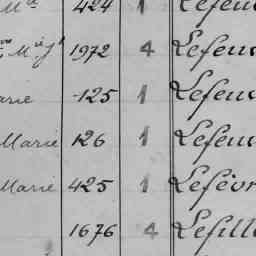 Mie 424 1 Lefeu
Mie Jh 1972 4 Lefeu
arie 125 1 Lefeu
Marie 126 1 Lefeu
Marie 425 1 Lefèvr
1676 4 Lefill